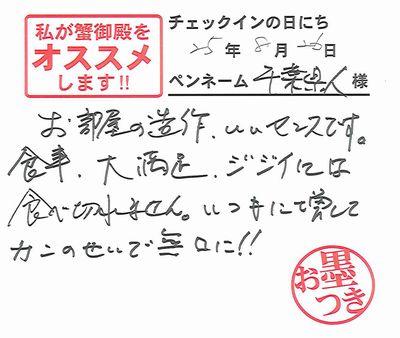 私が蟹御殿を
オススメ
します!!
チェックインの日にち
25年8月26日
ペンネーム 千葉県人 様
お部屋の造作、いいセンスです。
食事、大満足、ジジイには
食べ切れません。いつもにて増して
カニのせいで無口に!!
お墨つき